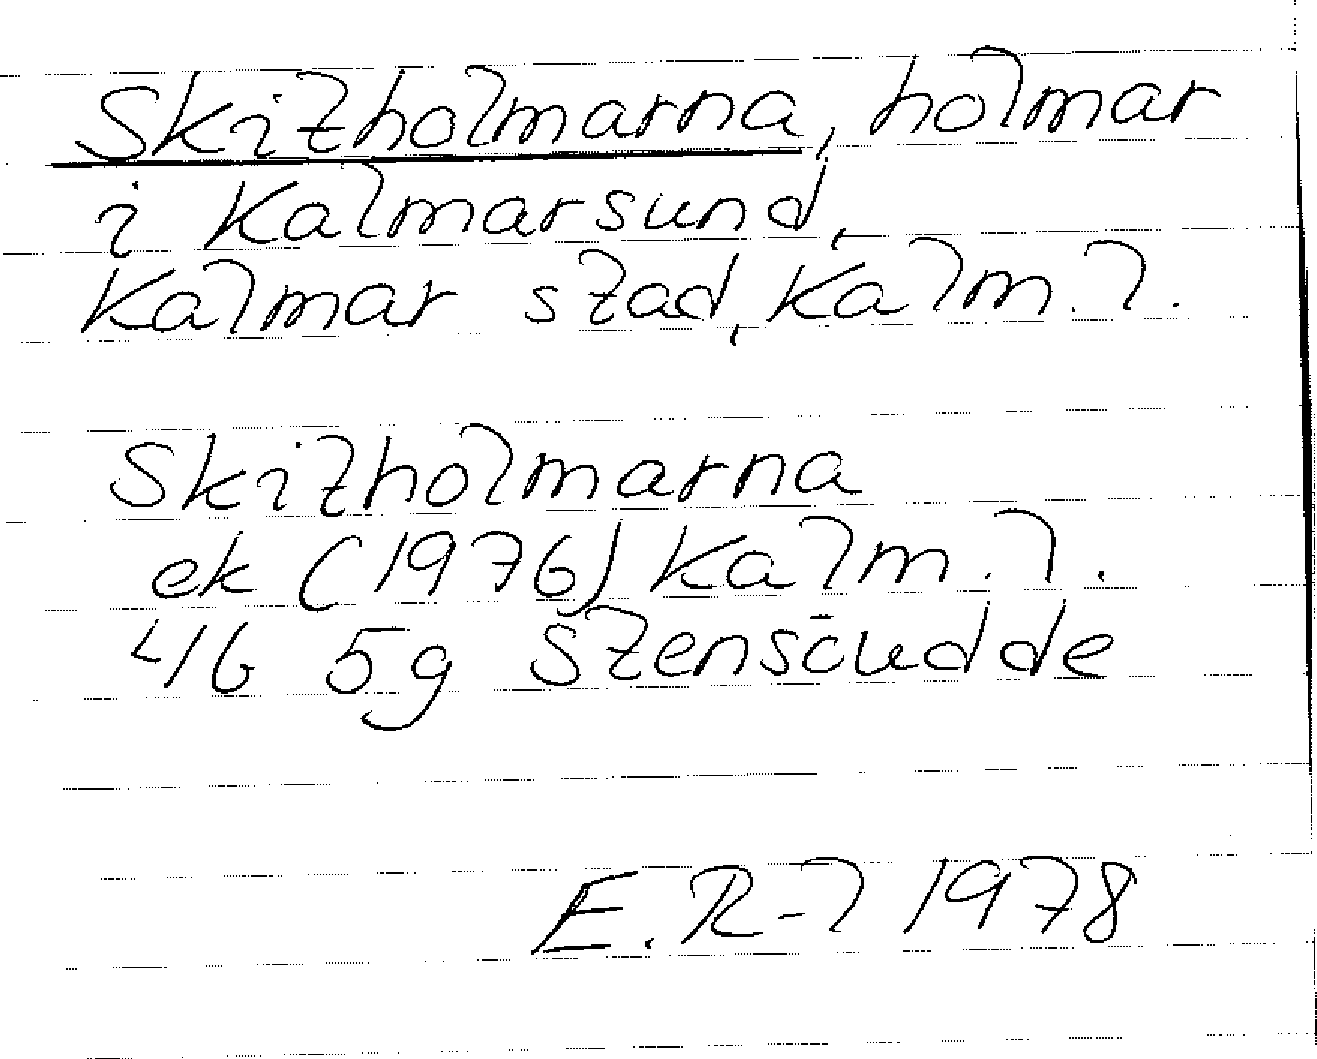 Skitholmarna, holmar
i Kalmarsund,
Kalmar stad, Kalm. l.
Skitholmarna
ek (1976) Kalm. l.
4G 5g Stensöudde
E. R-l 1978